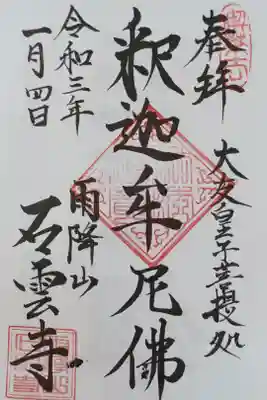 奉拝
大友皇子菩提処
釈迦牟尼佛
雨降山
石雲寺
令和三年
一月四日